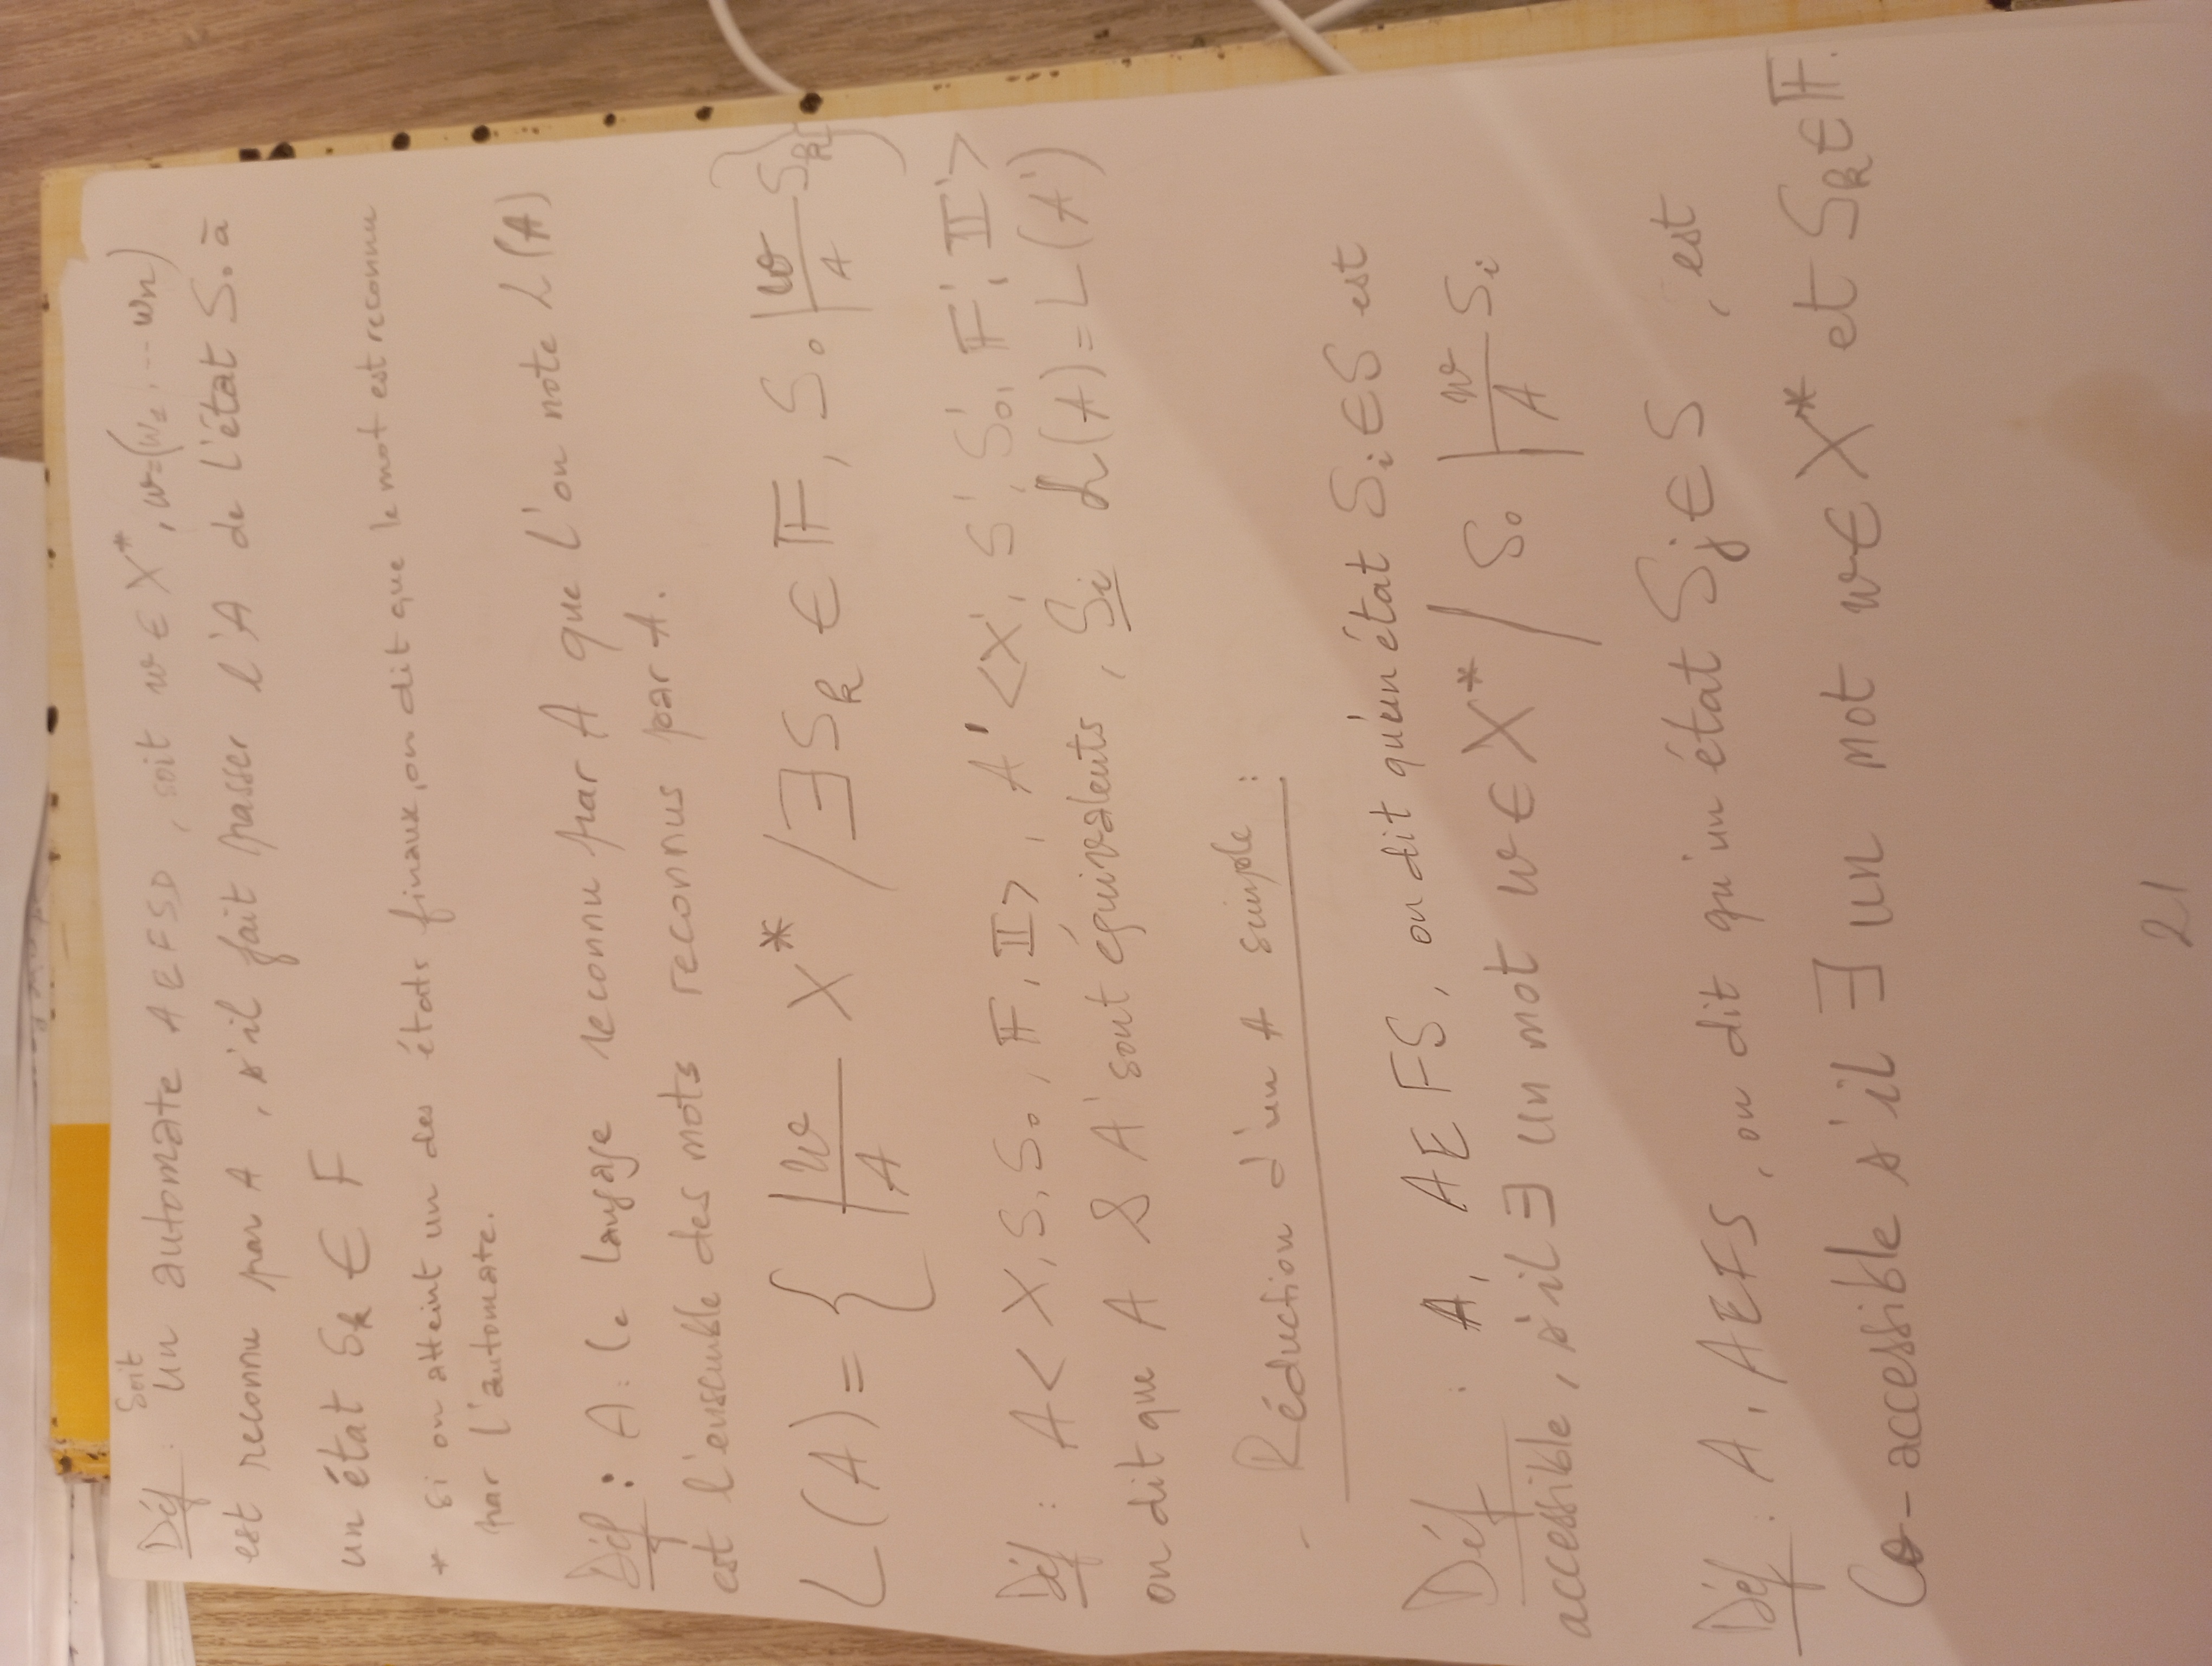 Soit
Déf : Un automate AEFSD, soit w ∈ X*, w=(w1, ... wn)
est reconnu par A, s'il fait passer l'A de l'état S0 à
un état Sk ∈ F
* Si on atteint un des états finaux, on dit que le mot est reconnu
par l'automate.
Déf : A. Le langage reconnu par A que l'on note L(A)
est l'ensemble des mots reconnus par A.
L(A) = { |w/A X* / ∃ Sk ∈ F, S0 |w/A Sk }
Déf : A < X, S, S0, F, II >, A' < X', S', S'0, F', II' >
on dit que A & A' sont équivalents, Si L(A) = L(A')
- Réduction d'un A simple :
Déf : A, AEFS, on dit qu'un état Si ∈ S est
accessible, s'il ∃ un mot w ∈ X* / S0 |w/A Si
Déf : A, AEFS, on dit qu'un état Sj ∈ S, est
Co-accessible s'il ∃ un mot w ∈ X* et Sk ∈ F.
21